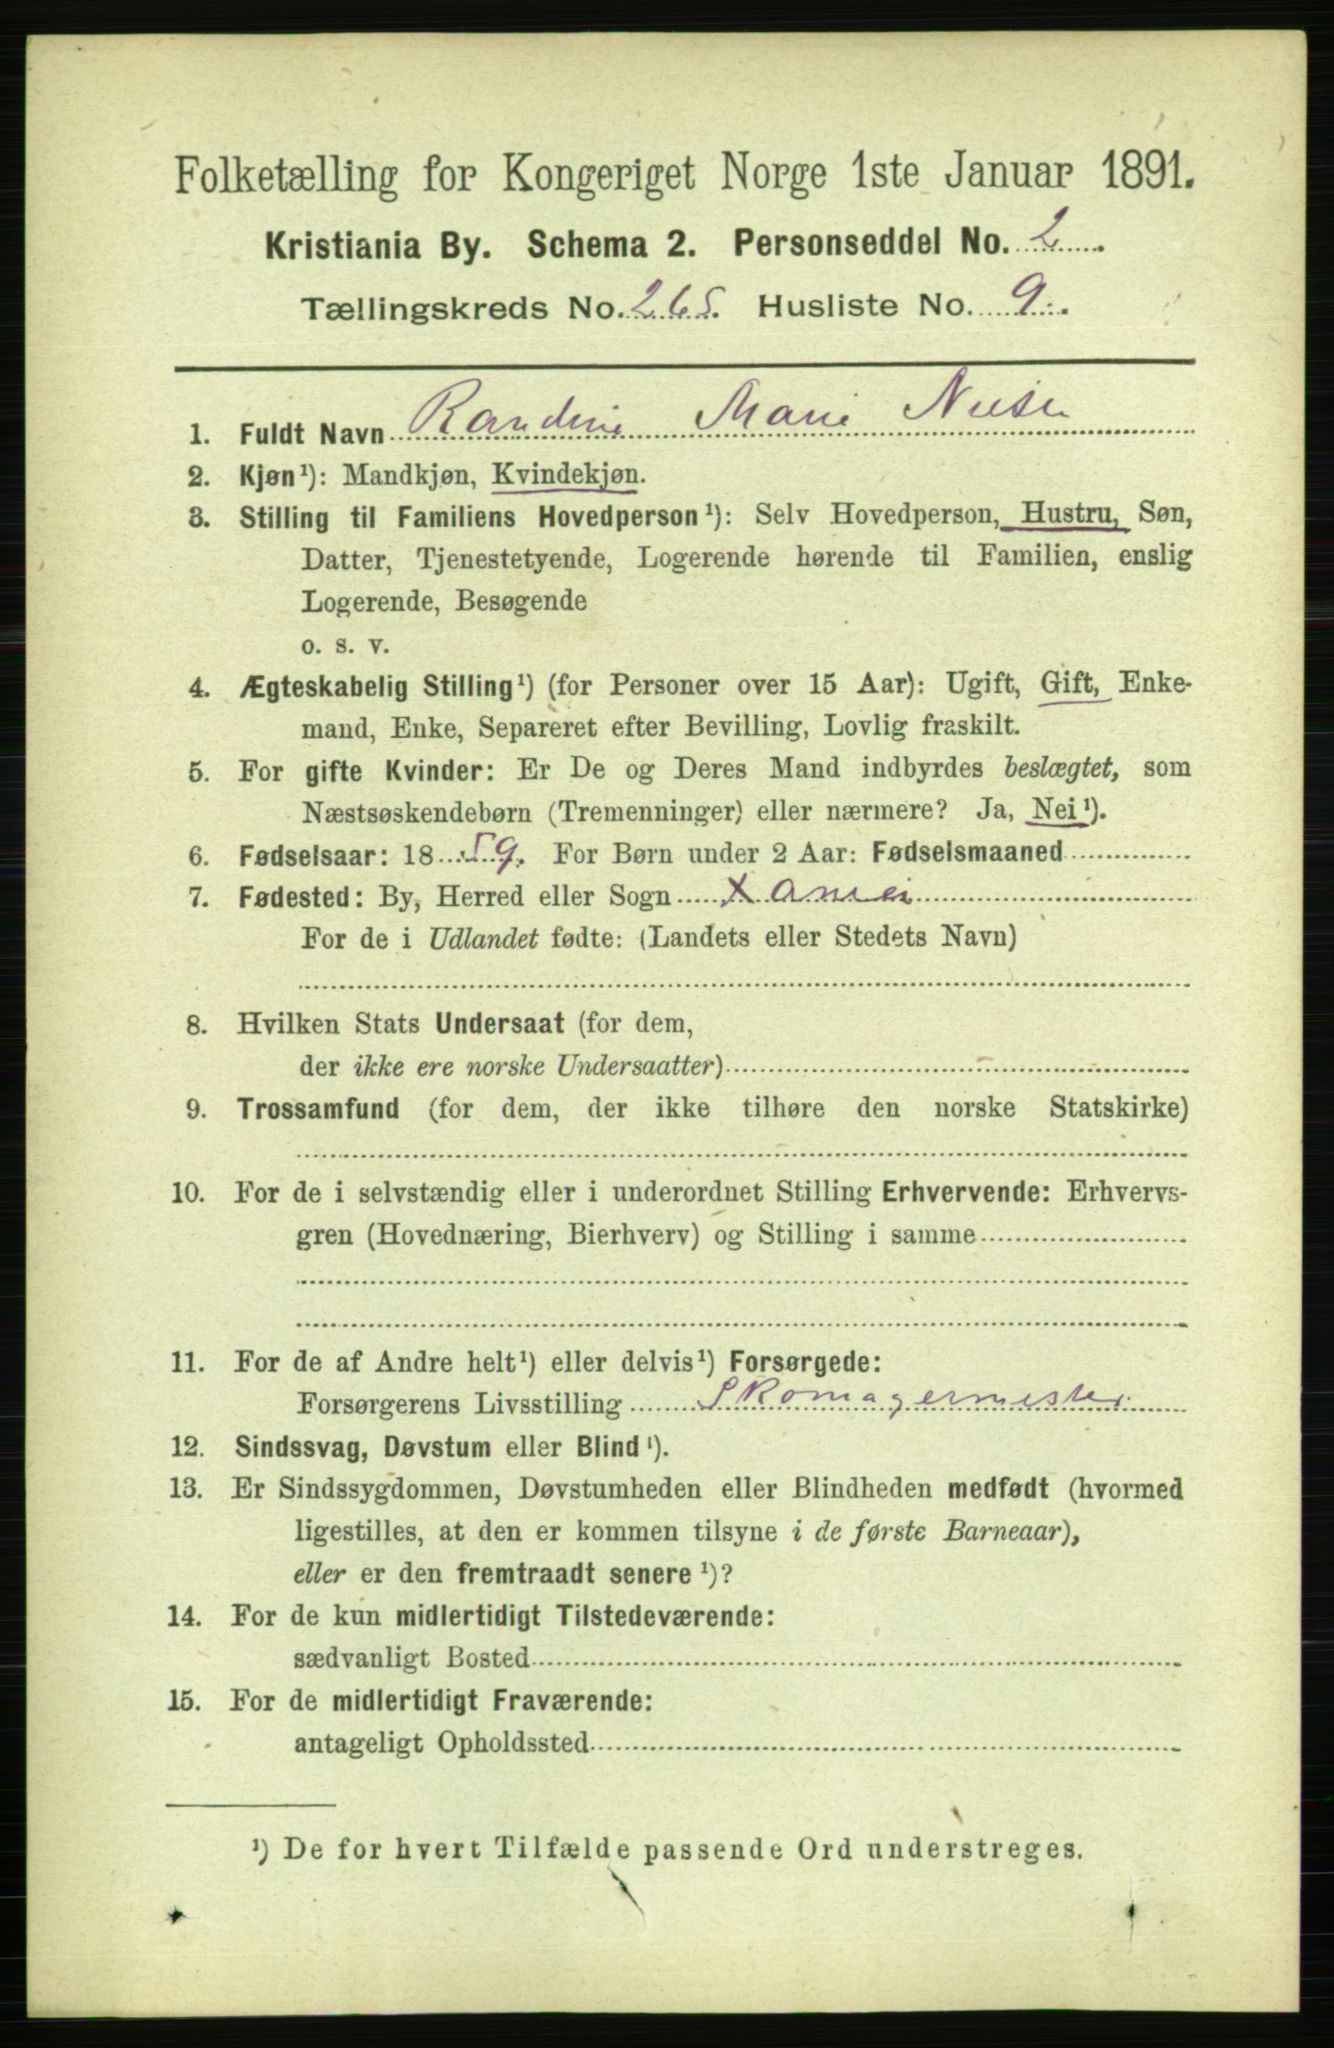 Folketælling for Kongeriget Norge 1ste Januar 1891.
Kristiania By. Schema 2. Personseddel No. 2
Tællingskreds No. 265. Husliste No. 9.
1. Fuldt Navn Randine Marie
2. Kjøn¹): Mandkjøn, Kvindekjøn.
3. Stilling til Familiens Hovedperson¹): Selv Hovedperson, Hustru, Søn,
Datter, Tjenestetyende, Logerende hørende til Familien, enslig
Logerende, Besøgende
o. s. v.
4. Ægteskabelig Stilling¹) (for Personer over 15 Aar): Ugift, Gift, Enke-
mand, Enke, Separeret efter Bevilling, Lovlig fraskilt.
5. For gifte Kvinder: Er De og Deres Mand indbyrdes beslægtet, som
Næstsøskendebørn (Tremenninger) eller nærmere? Ja, Nei¹).
6. Fødselsaar: 1859. For Børn under 2 Aar: Fødselsmaaned
7. Fødested: By, Herred eller Sogn
For de i Udlandet fødte: (Landets eller Stedets Navn)
8. Hvilken Stats Undersaat (for dem,
der ikke ere norske Undersaatter)
9. Trossamfund (for dem, der ikke tilhøre den norske Statskirke)
10. For de i selvstændig eller i underordnet Stilling Erhvervende: Erhvervs-
gren (Hovednæring, Bierhverv) og Stilling i samme
11. For de af Andre helt¹) eller delvis¹) Forsørgede:
Forsørgerens Livsstilling Skomagermester
12. Sindssvag, Døvstum eller Blind¹).
13. Er Sindssygdommen, Døvstumheden eller Blindheden medfødt (hvormed
ligestilles, at den er kommen tilsyne i de første Barneaar),
eller er den fremtraadt senere¹)?
14. For de kun midlertidigt Tilstedeværende:
sædvanligt Bosted
15. For de midlertidigt Fraværende:
antageligt Opholdssted
¹) De for hvert Tilfælde passende Ord understreges.